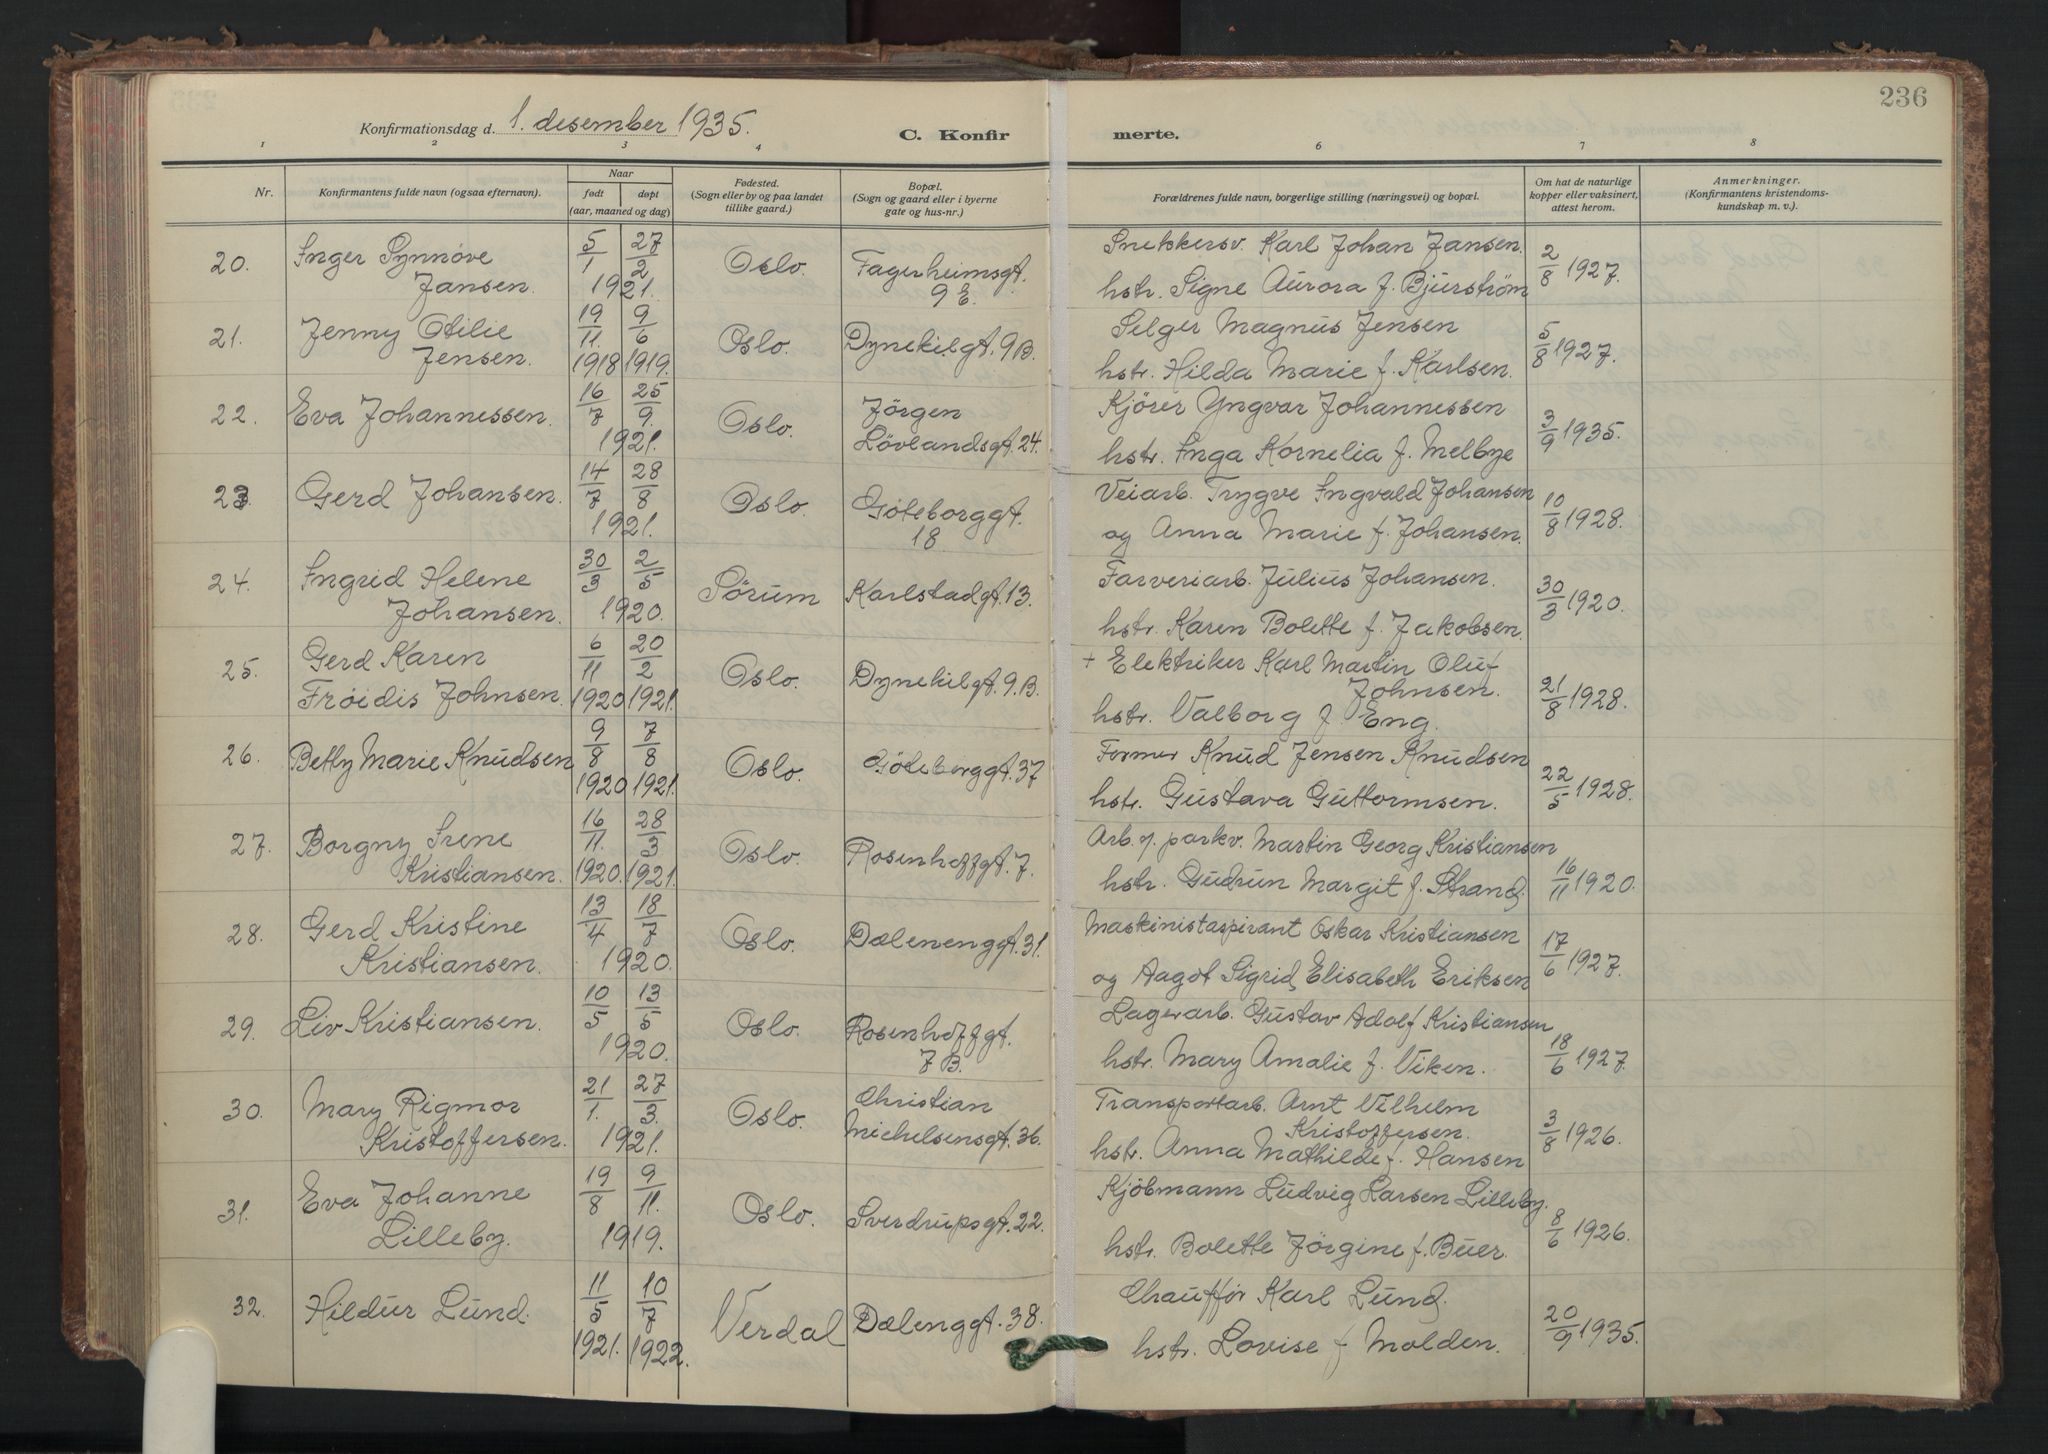 236
Konfirmationsdag d. 1. desember 1935.
C. Konfirmerte.
1 2 3 4 6 7 8
Nr.
Konfirmantens fulde navn (ogsaa efternavn).
Naar
født døpt
(aar, maaned og dag)
Fødested.
(Sogn eller by og paa landet
tillike gaard.)
Bopæl.
(Sogn og gaard eller i byerne
gate og hus-nr.)
Forældrenes fulde navn, borgerlige stilling (næringsvei) og bopæl.
Om hat de naturlige
kopper eller vaksinert,
attest herom.
Anmerkninger.
(Konfirmantens kristendoms-
kundskap m. v.).
20. Inger Synnöve 5/1 27/2 Oslo. Fagerheimsgt. Snekkersv. Karl Johan Jansen. 2/8 1927.
Jansen. 1921. 9 E. hstr. Signe Aurora f. Bjurström
21. Jenny Otilie 19/11. 9/6 Oslo. Dynekilgt. 9B. Selger Magnus Jensen 5/8 1927.
Jensen. 1918 1919. hstr. Hilda Marie f. Karlsen.
22. Eva Johannessen. 16/7 25/9. Oslo. Jörgen Kjörer Yngvar Johannessen 3/9 1935.
1921. Lövlandsgt. 24. hstr. Inga Kornelia f. Melbye
23. Gerd Johansen. 14/7 28/8 Oslo. Göteborggt. Veiarb. Trygve Ingvald Johansen 10/8 1928.
1921. 18 og Anna Marie f. Johansen.
24. Ingrid Helene 30/3 2/5 Sörum Karlstadgt. 13. Farveriarb. Julius Johansen. 30/3 1920.
Johansen. 1920. hstr. Karen Bolette f. Jakobsen.
25. Gerd Karen 6/11 20/2 Oslo. Dynekilgt. 9.B. + Elektriker Karl Martin Oluf
Fröidis Johnsen. 1920 1921. Johnsen. 21/8 1928.
hstr. Valborg f. Eng.
26. Betty Marie Knudsen 9/8 7/8 Oslo. Göteborggt. 37 Former Knud Jensen Knudsen 22/5 1928.
1920 1921. hstr. Gustava Guttormsen.
27. Borgny Irene 16/11. 28/3 Oslo. Rosenhoffgt. 7. Arb. v. parkv. Martin Georg Kristiansen 16/11 1920.
Kristiansen. 1920. 1921. hstr. Gudrun Margit f. Strand.
28. Gerd Kristine 13/4 18/7 Oslo. Dælenenggt. 31. Maskinistaspirant Oskar Kristiansen 17/6 1927.
Kristiansen. 1920. og Aagot Sigrid Elisabeth Eriksen
29. Liv Kristiansen. 10/5 13/5 Oslo. Rosenhoffgt. Lagerarb. Gustav Adolf Kristiansen 18/6 1927.
1920. 7 B. hstr. Mary Amalie f. Viken.
30. Mary Rigmor 21/1. 27/3. Oslo. Christian Transportarb. Arnt Vilhelm 3/8 1926.
Kristoffersen. 1921. Michelsensgt. 36. Kristoffersen.
hstr. Anna Mathilde f. Hansen
31. Eva Johanne 19/8 9/11. Oslo. Sverdrupsgt. 22. Kjöbmann Ludvig Larsen Lilleby. 8/6 1926.
Lilleby. 1919. hstr. Bolette Jörgine f. Buer.
32. Hildur Lund. 11/5 10/7 Verdal Dælenggt. 38. Chaufför Karl Lund. 20/9 1935.
1921. 1922. hstr. Lovise f Molden.